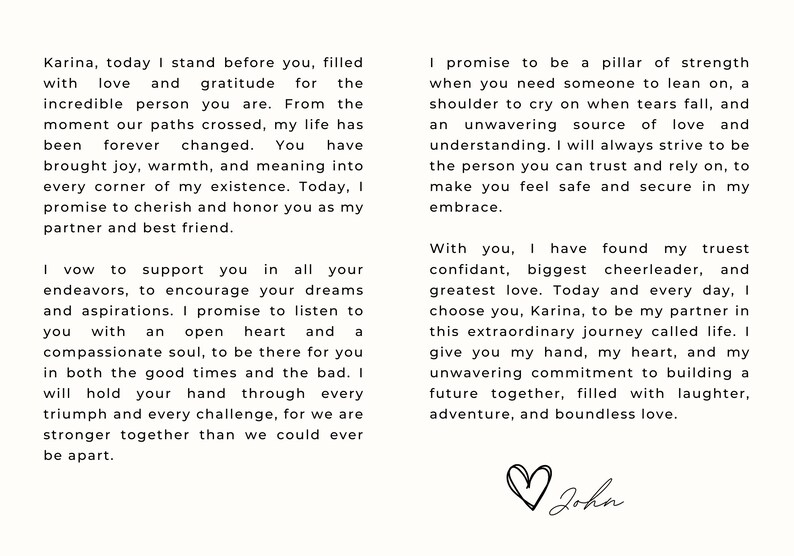 Karina, today I stand before you, filled
with love and gratitude for the
incredible person you are. From the
moment our paths crossed, my life has
been forever changed. You have
brought joy, warmth, and meaning into
every corner of my existence. Today, I
promise to cherish and honor you as my
partner and best friend.
I vow to support you in all your
endeavors, to encourage your dreams
and aspirations. I promise to listen to
you with an open heart and a
compassionate soul, to be there for you
in both the good times and the bad. I
will hold your hand through every
triumph and every challenge, for we are
stronger together than we could ever
be apart.
I promise to be a pillar of strength
when you need someone to lean on, a
shoulder to cry on when tears fall, and
an unwavering source of love and
understanding. I will always strive to be
the person you can trust and rely on, to
make you feel safe and secure in my
embrace.
With you, I have found my truest
confidant, biggest cheerleader, and
greatest love. Today and every day, I
choose you, Karina, to be my partner in
this extraordinary journey called life. I
give you my hand, my heart, and my
unwavering commitment to building a
future together, filled with laughter,
adventure, and boundless love.
John